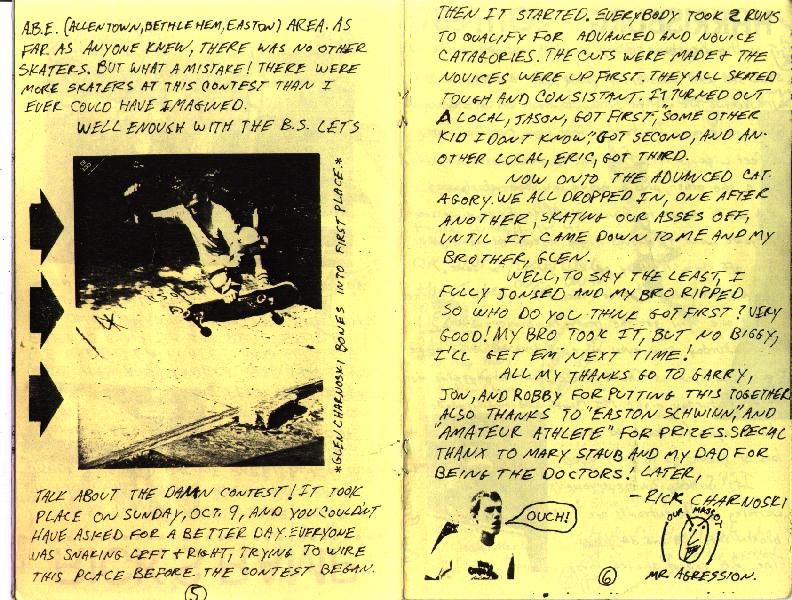 A.B.E. (ALLENTOWN, BETHLEHEM, EASTON) AREA. AS
FAR AS ANYONE KNEW, THERE WAS NO OTHER
SKATERS. BUT WHAT A MISTAKE! THERE WERE
MORE SKATERS AT THIS CONTEST THAN I
EVER COULD HAVE IMAGINED.
WELL ENOUGH WITH THE B.S. LETS
*GLEN CHARNOSKI BONES INTO FIRST PLACE.*
TALK ABOUT THE DAMN CONTEST! IT TOOK
PLACE ON SUNDAY, OCT. 9, AND YOU COULDN'T
HAVE ASKED FOR A BETTER DAY. EVERYONE
WAS SNAKING LEFT + RIGHT, TRYING TO WIRE
THIS PLACE BEFORE THE CONTEST BEGAN.
5
THEN IT STARTED. EVERYBODY TOOK 2 RUNS
TO QUALIFY FOR ADVANCED AND NOVICE
CATAGORIES. THE CUTS WERE MADE + THE
NOVICES WERE UP FIRST. THEY ALL SKATED
TOUGH AND CONSISTANT. IT TURNED OUT
A LOCAL, JASON, GOT FIRST, "SOME OTHER
KID I DONT KNOW" GOT SECOND, AND AN-
OTHER LOCAL, ERIC, GOT THIRD.
NOW ONTO THE ADVANCED CAT-
AGORY. WE ALL DROPPED IN, ONE AFTER
ANOTHER, SKATING OUR ASSES OFF,
UNTIL IT CAME DOWN TO ME AND MY
BROTHER, GLEN.
WELL, TO SAY THE LEAST, I
FULLY JONSED AND MY BRO RIPPED
SO WHO DO YOU THINK GOT FIRST? VERY
GOOD! MY BRO TOOK IT, BUT NO BIGGY,
I'LL GET EM' NEXT TIME!
ALL MY THANKS GO TO GARRY,
JON, AND ROBBY FOR PUTTING THIS TOGETHER
ALSO THANKS TO "EASTON SCHWINN" AND
"AMATEUR ATHLETE" FOR PRIZES. SPECIAL
THANX TO MARY STAUB AND MY DAD FOR
BEING THE DOCTORS! LATER,
- RICK CHARNOSKI
OUCH!
OUR MASSOT
MR. AGRESSION.
6